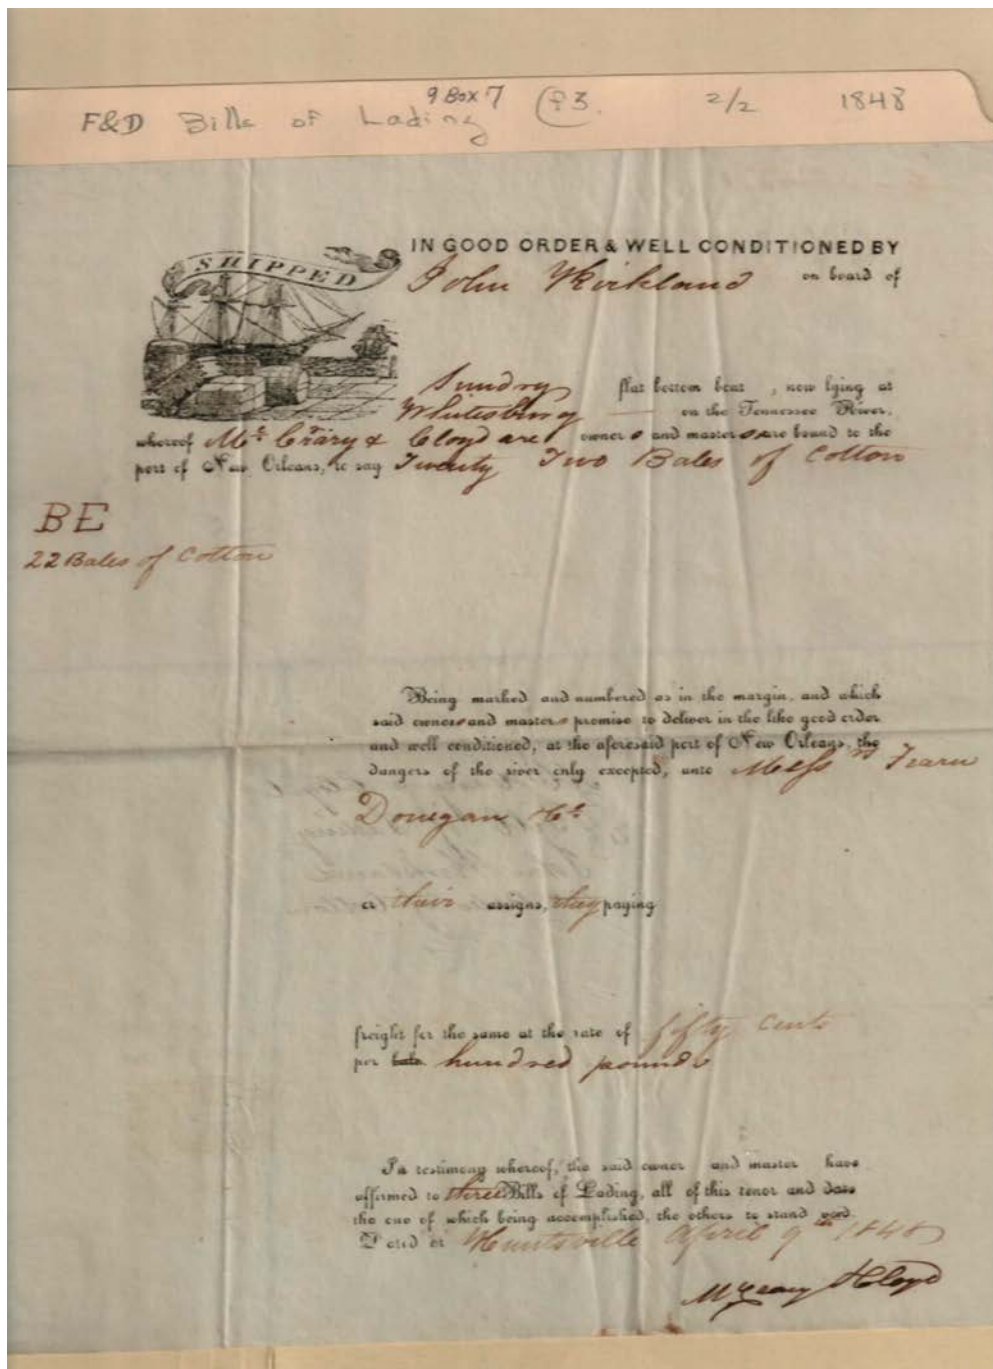 9 Box 7
F&D Bills of Lading F3. 2/2 1848
SHIPPED
IN GOOD ORDER & WELL CONDITIONED BY
John Kirkland on board of
Sundry flat bottom boat, now lying at
Whitesburg on the Tennessee River,
whereof McCrary & Cloyd are owners and masters are bound to the
port of New Orleans, to say Twenty Two Bales of Cotton
BE
22 Bales of Cotton
Being marked and numbered as in the margin, and which
said owners and masters promise to deliver in the like good order
and well conditioned, at the aforesaid port of New Orleans, the
dangers of the river only excepted, unto Messrs Fearn
Donegan & Co
or their assigns, they paying
freight for the same at the rate of fifty cents
per bale hundred pounds
In testimony whereof, the said owner and master have
affirmed to three Bills of Lading, all of this tenor and date
the one of which being accomplished, the others to stand void.
Dated at Huntsville April 9th 1848
McCrary & Cloyd